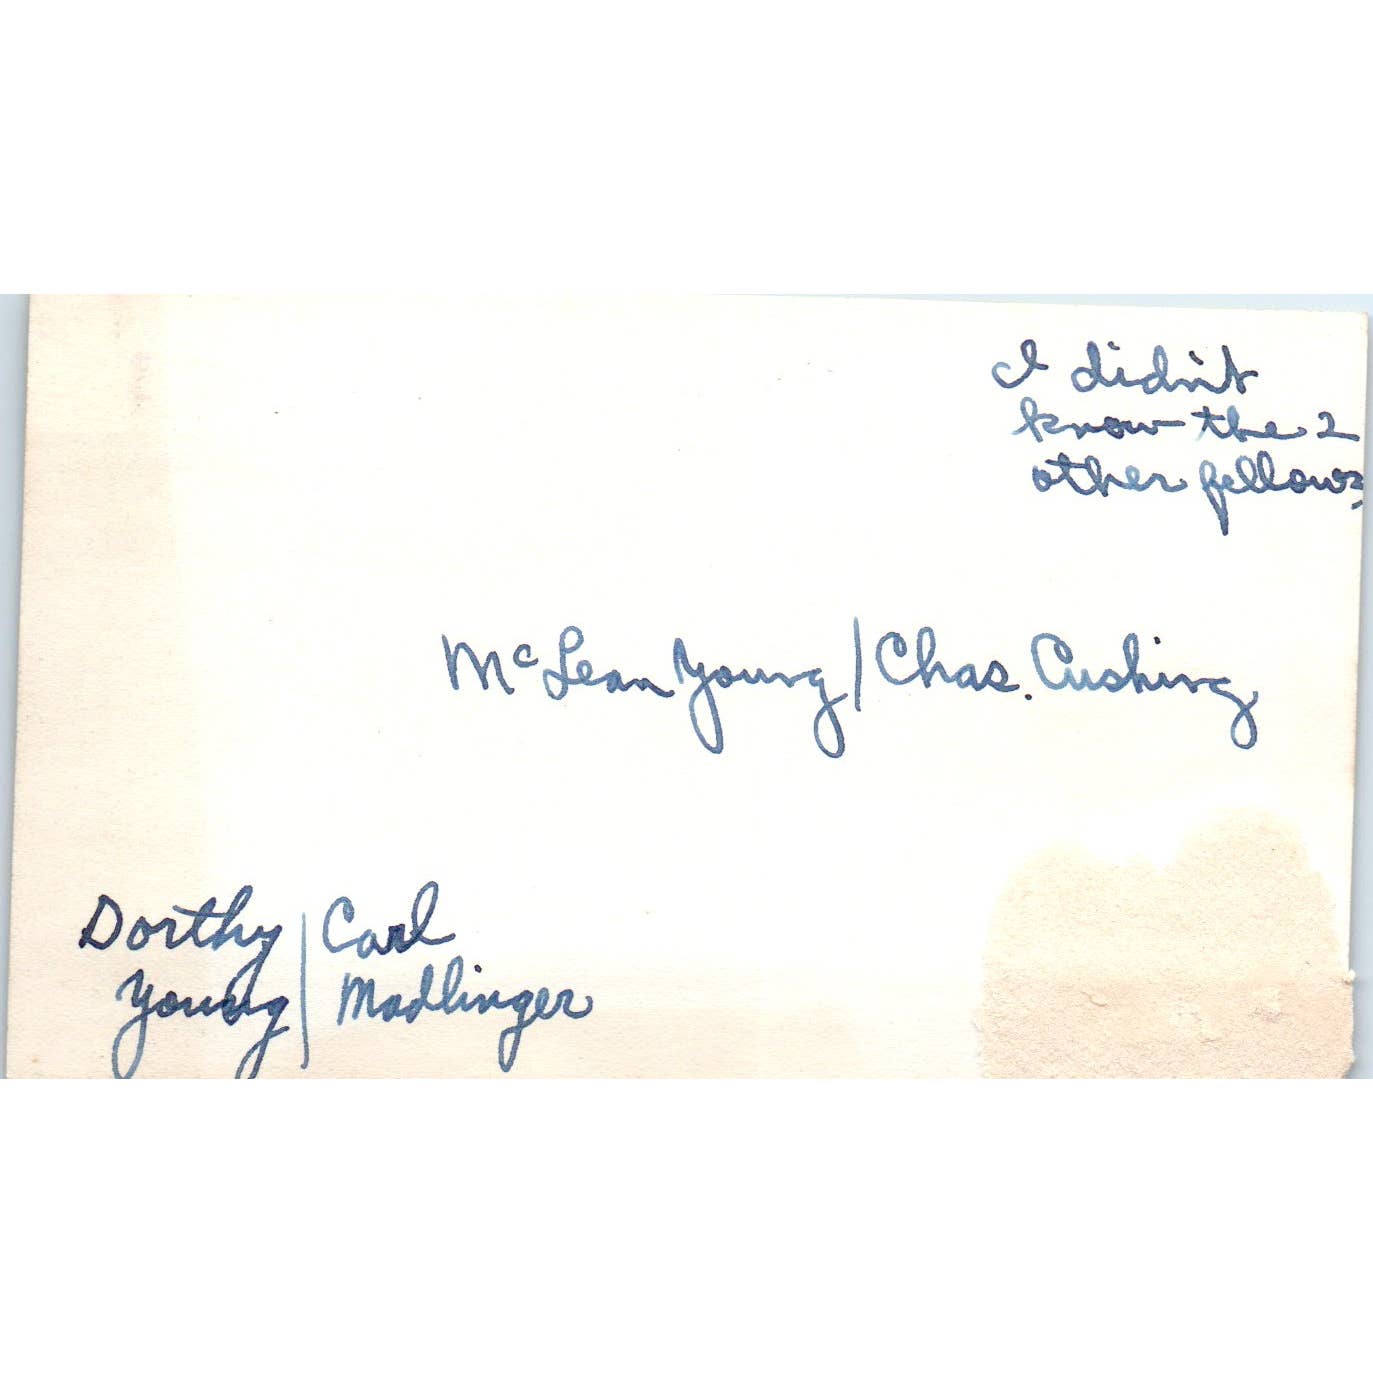 I didn't
know the 2
other fellows,
McLean Young / Chas. Cushing
Dorthy / Carl
Young / Madlinger